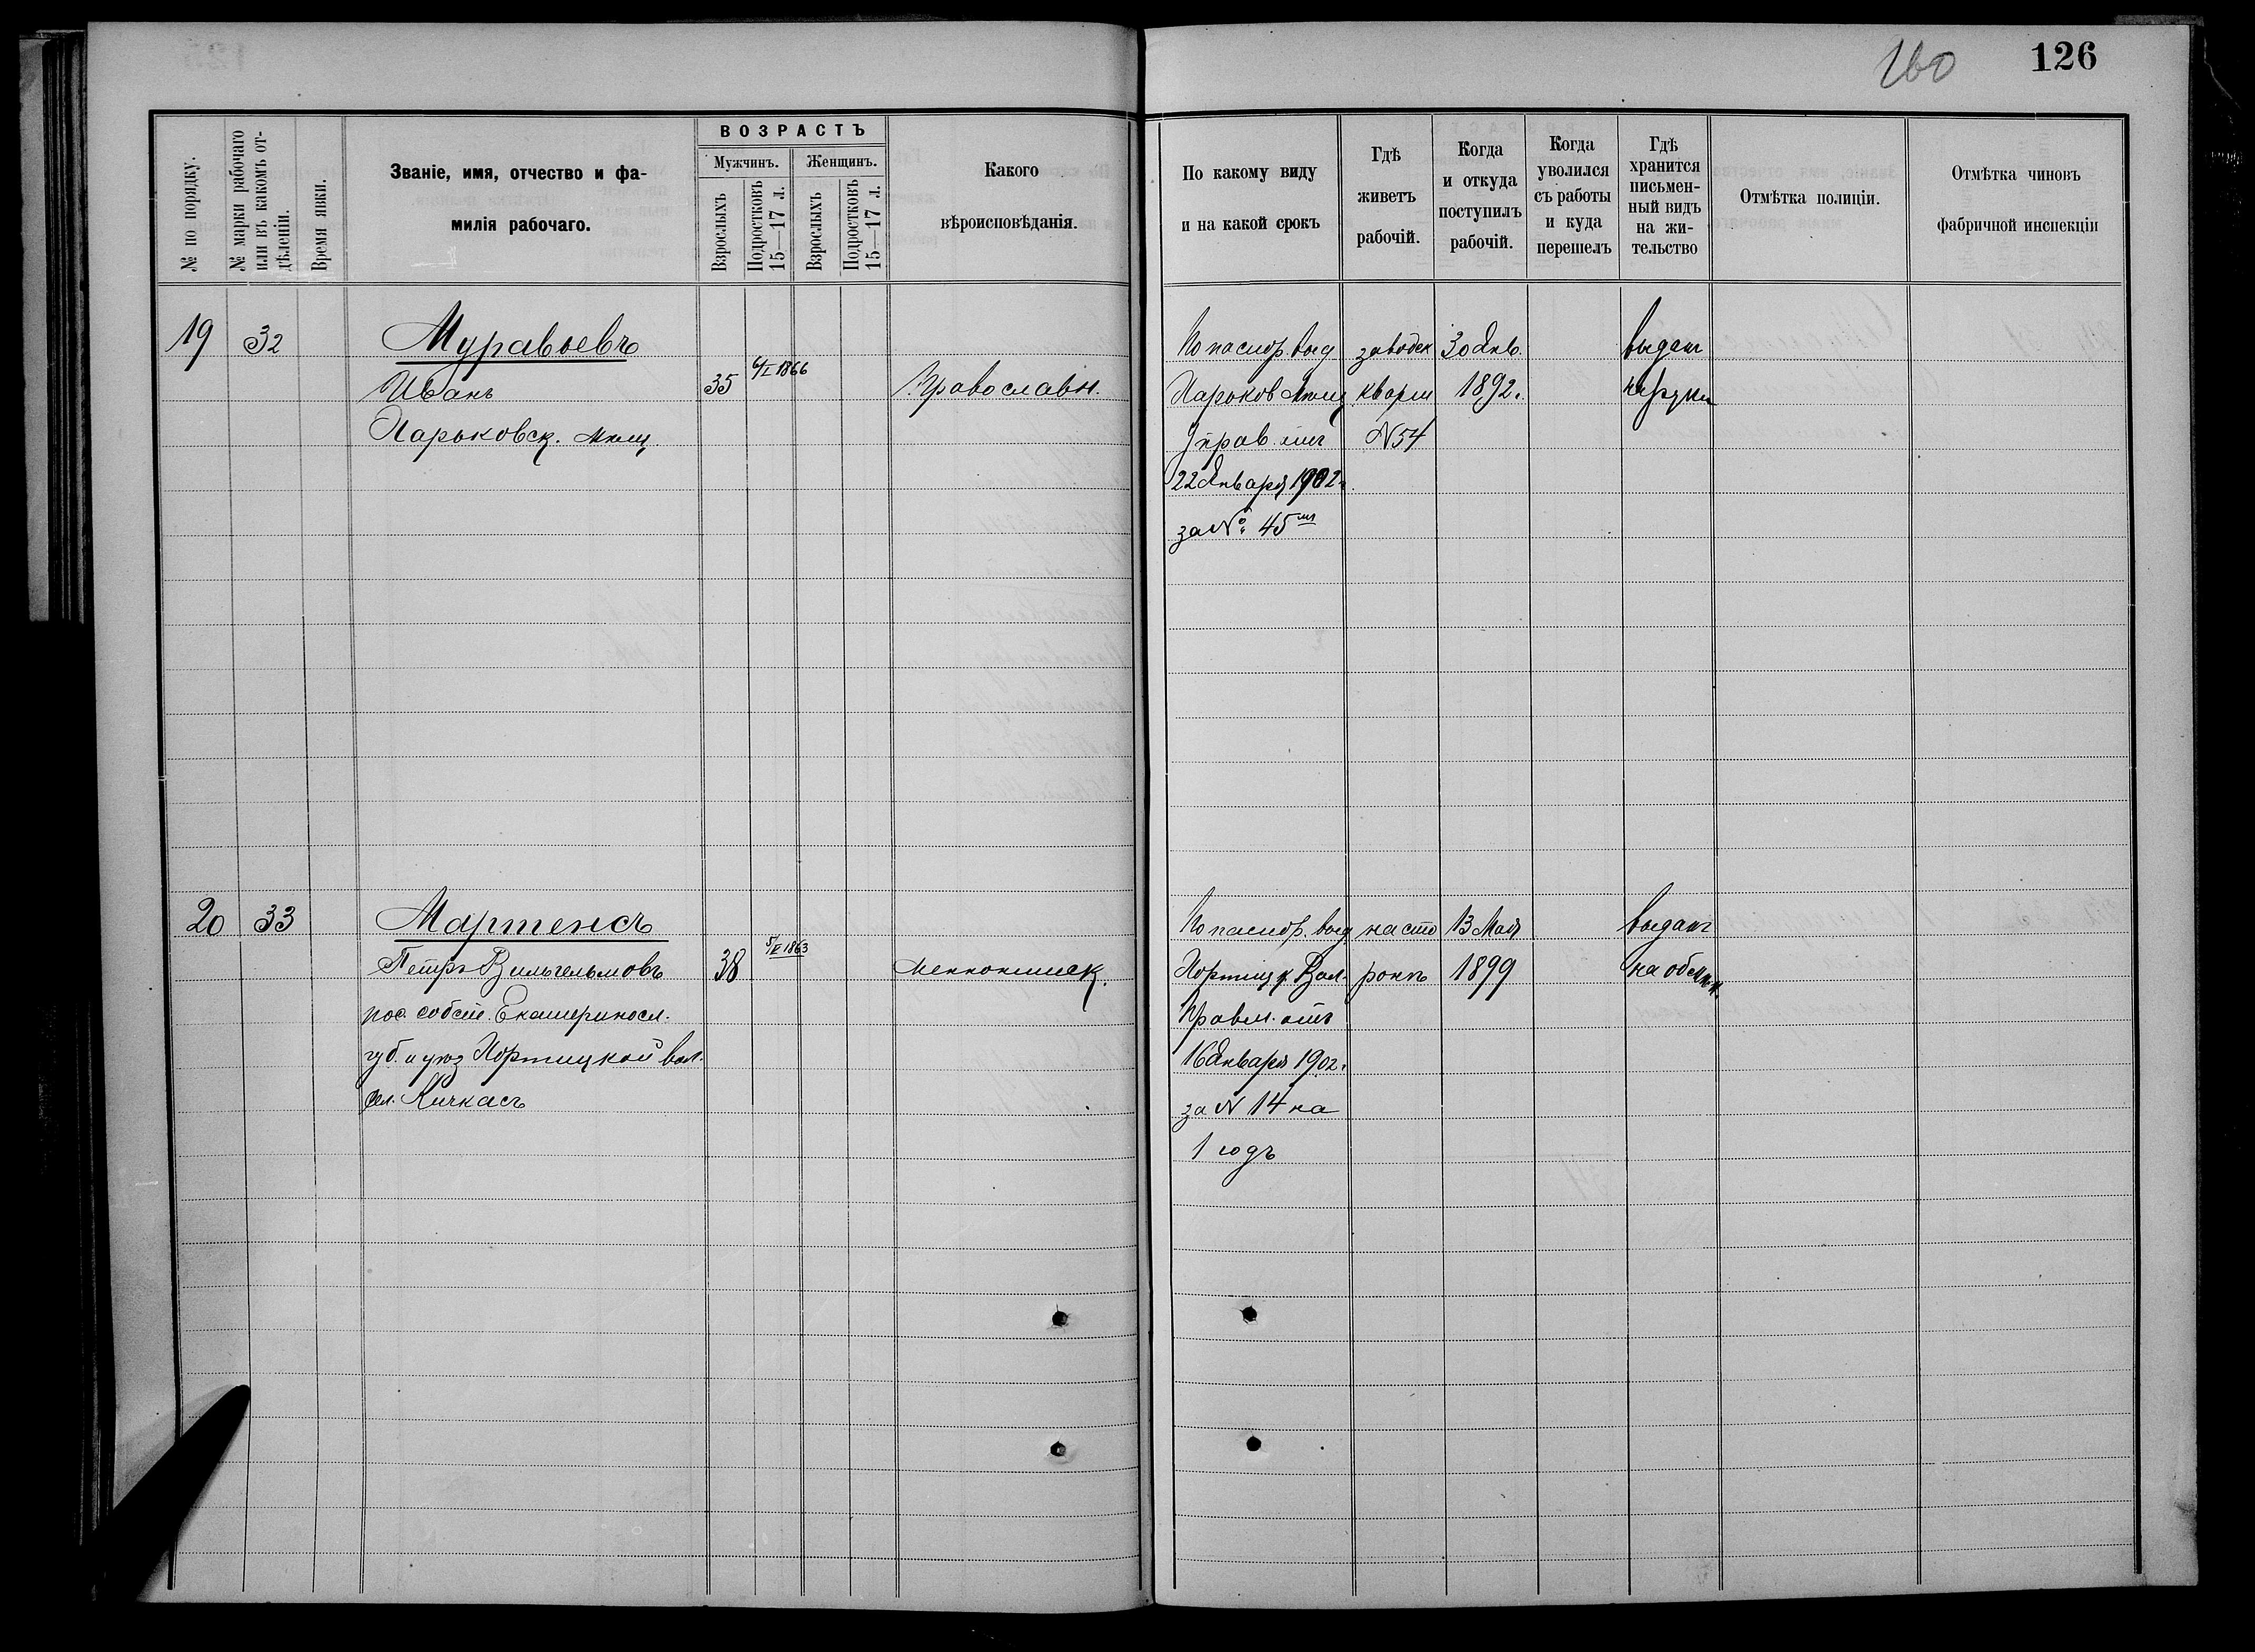 160 126
№ по порядку.
№ марки рабочаго или въ какомъ от-
дѣленіи.
Время явки.
Званіе, имя, отчество и фа-
милія рабочаго.
ВОЗРАСТЪ
Мужчинъ. Женщинъ.
Взрослыхъ
Подростковъ 15—17 л.
Взрослыхъ
Подростковъ 15—17 л.
Какого
вѣроисповѣданія.
По какому виду
и на какой срокъ
Гдѣ
живетъ
рабочій.
Когда
и откуда
поступилъ
рабочій.
Когда
уволился
съ работы
и куда
перешелъ
Гдѣ
хранится
письмен-
ный видъ
на жи-
тельство
Отмѣтка полиціи.
Отмѣтка чиновъ
фабричной инспекціи
19 32 Муравьевъ
Иванъ 35 1866 Православн.
Харьковск. мѣщ.
По паспор. выд
Харьков Мѣщ
Управ. отъ
22 Января 1902 г.
за № 45
заводск
кварт
N 54
30 Янв.
1892 г.
выданъ
на руки
20 33 Мартенсъ
Петръ Вильгельмовъ 38 1863 меннонитск.
пос. собств. Екатериносл.
губ. и уѣз Хортицкой вол.
сел. Кичкасъ
По паспор. выд
Хортицк. Вол.
Правл. отъ
16 Января 1902 г.
за N 14 на
1 годъ
на сто
ронѣ
13 Мая
1899
выданъ
на обмѣн.